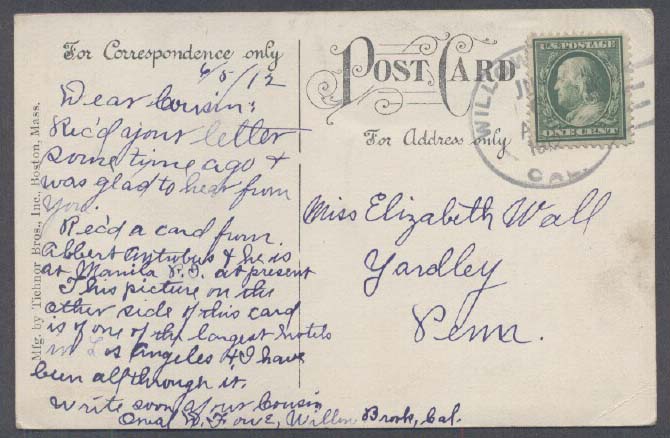 For Correspondence only
6/5/12
Dear Cousin:
Rec'd your letter
some time ago &
was glad to hear from
you.
Rec'd a card from
Albert & he is
at Manila P.I. at present
This picture on the
other side of this card
is of one of the largest hotels
in Los Angeles & I have
been all through it.
Write soon your Cousin
Willow Brook, Cal.
Mfg. by Tichnor Bros., Inc., Boston, Mass.
POST CARD
For Address only
U.S. POSTAGE
ONE CENT
CAL.
Miss Elizabeth Wall
Yardley
Penn.